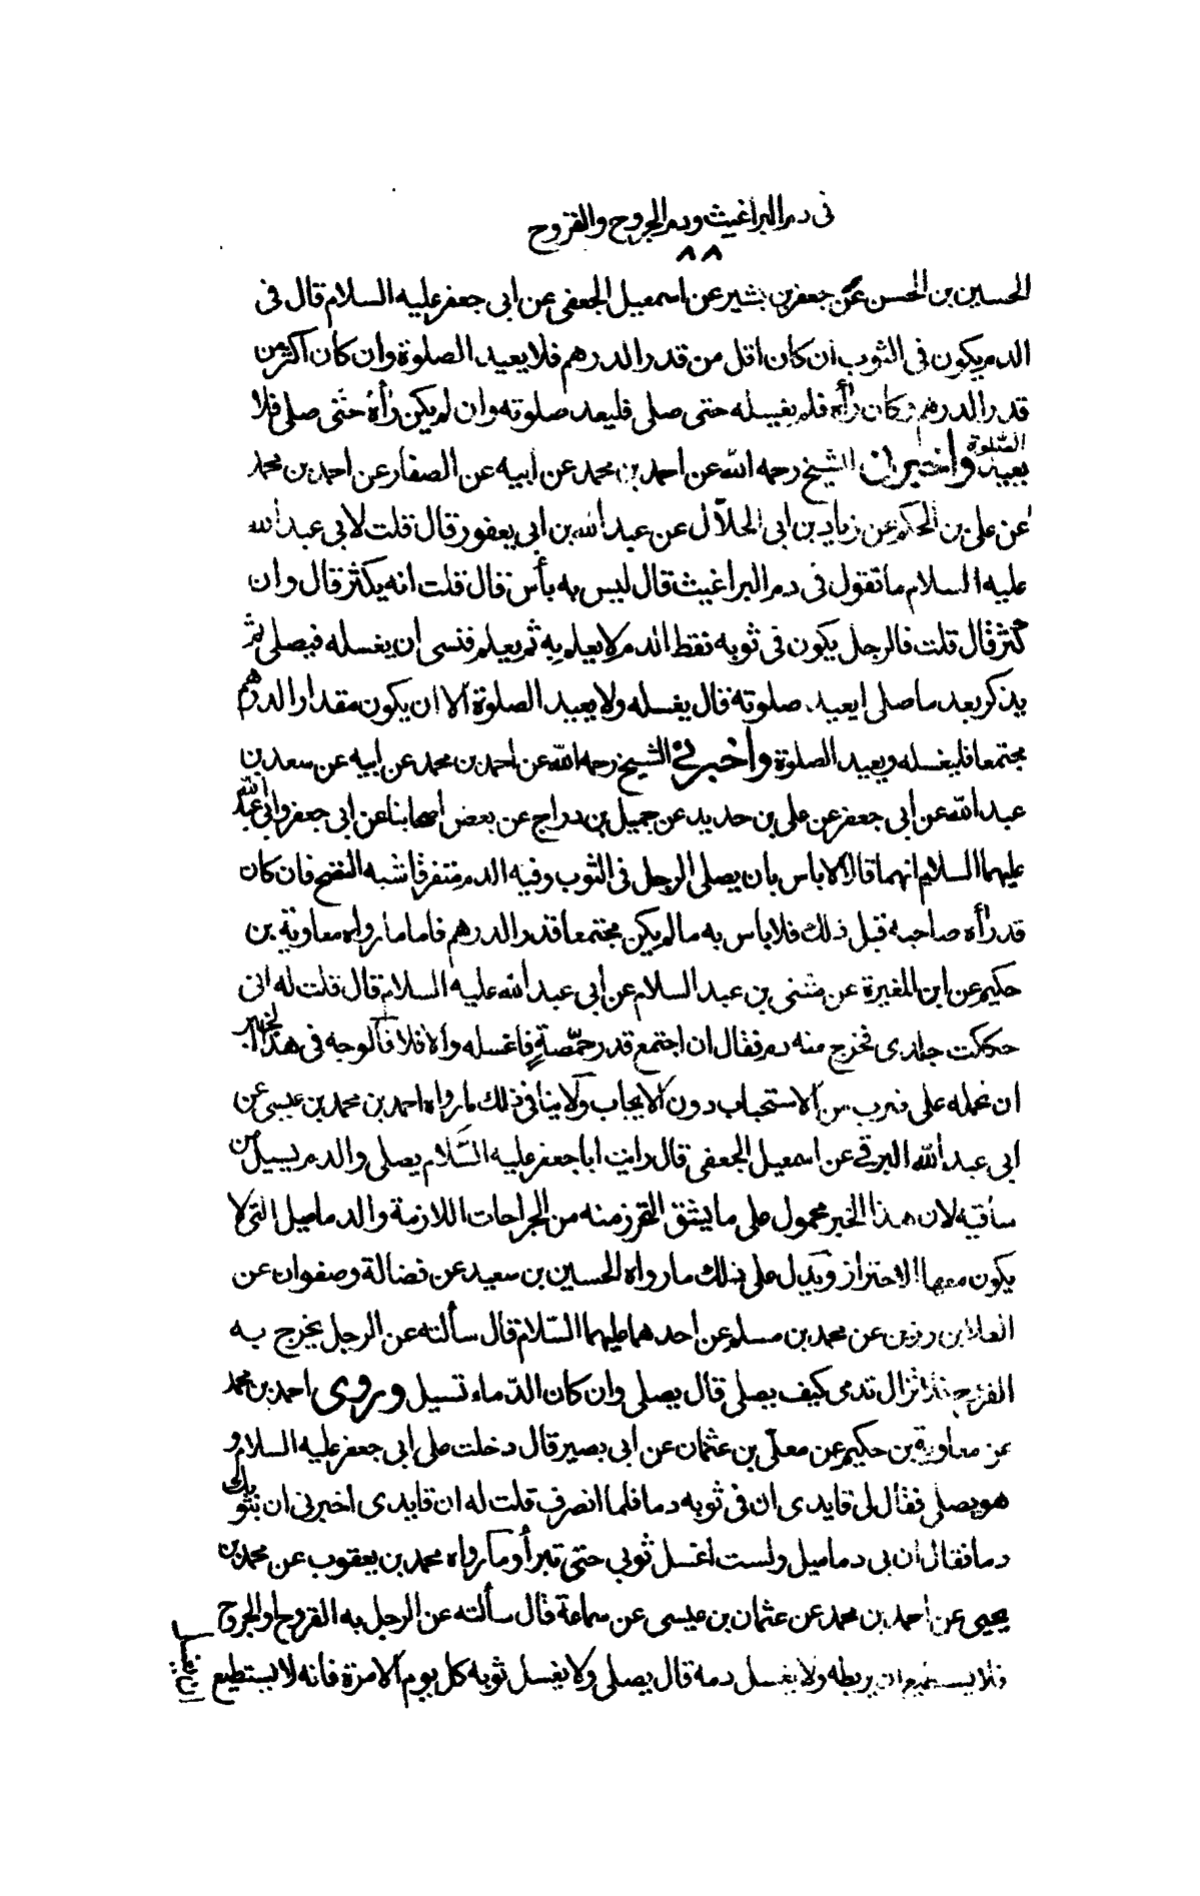 فى دم البراغيث ودم الجروح والقروح
٨٨
الحسين بن الحسن عن جعفر بن بشير عن اسمعيل الجعفى عن ابى جعفر عليه السلام قال فى
الدم يكون فى الثوب ان كان اقل من قدر الدرهم فلا يعيد الصلوة وان كان اكثر من
قدر الدرهم وكان رأه فلم يغسله حتى صلى فليعد صلوته وان لم يكن رأه حتى صلى فلا
يعيد الصلوة واخبرنى الشيخ رحمه الله عن احمد بن محمد عن ابيه عن الصفار عن احمد بن محمد
عن على بن الحكم عن زياد بن ابى الحلال عن عبد الله بن ابى يعفور قال قلت لابى عبد الله
عليه السلام ما تقول فى دم البراغيث قال ليس به بأس قال قلت انه يكثر قال وان
كثر قال قلت فالرجل يكون فى ثوبه نقط الدم لا يعلم به ثم يعلم فنسى ان يغسله فيصلى ثم
يذكر بعد ما صلى ايعيد صلوته قال يغسله ولا يعيد الصلوة الا ان يكون مقدار الدرهم
مجتمعا فليغسله ويعيد الصلوة واخبرنى الشيخ رحمه الله عن احمد بن محمد عن ابيه عن سعد بن
عبد الله عن ابى جعفر عن على بن حديد عن جميل بن دراج عن بعض اصحابنا عن ابى جعفر وابى عبد الله
عليهما السلام انهما قالا لا باس بان يصلى الرجل فى الثوب وفيه الدم متفرقا شبه النضح فان كان
قد رأه صاحبه قبل ذلك فلا باس به ما لم يكن مجتمعا قدر الدرهم فاما ما رواه معاوية بن
حكيم عن ابن المغيرة عن مثنى بن عبد السلام عن ابى عبد الله عليه السلام قال قلت له انى
حككت جلدى فخرج منه دم فقال ان اجتمع قدر حمّصةٍ فاغسله والا فلا فالوجه فى هذا الخبر
ان نحمله على ضرب من الاستحباب دون الايجاب ولا ينافى ذلك ما رواه احمد بن محمد بن عيسى عن
ابى عبد الله البرقى عن اسمعيل الجعفى قال رايت ابا جعفر عليه السّلام يصلى والدم يسيل من
ساقيه لان هذا الخبر محمول على ما يشق التحرز منه من الجراحات اللازمة والدماميل التى لا
يكون معها الاحتراز ويدل على ذلك ما رواه الحسين بن سعيد عن فضالة وصفوان عن
العلا بن رزين عن محمد بن مسلم عن احدهما عليهما السّلام قال سألته عن الرجل يخرج به
القروح فلا تزال تدمى كيف يصلى قال يصلى وان كان الدّماء تسيل وروى احمد بن محمد
عن معاوية بن حكيم عن معلى بن عثمان عن ابى بصير قال دخلت على ابى جعفر عليه السلام و
هو يصلى فقال لى قايدى ان فى ثوبه دما فلما انصرف قلت له ان قايدى اخبرنى ان بثوبك
دما فقال ان بى دماميل ولست اغسل ثوبى حتى تبرأ وما رواه محمد بن يعقوب عن محمد بن
يحيى عن احمد بن محمد عن عثمان بن عيسى عن سماعة قال سألته عن الرجل به القروح او الجروح
فلا يستطيع ان يربطه ولا يغسل دمه قال يصلى ولا يغسل ثوبه كل يوم الا مرة فانه لا يستطيع